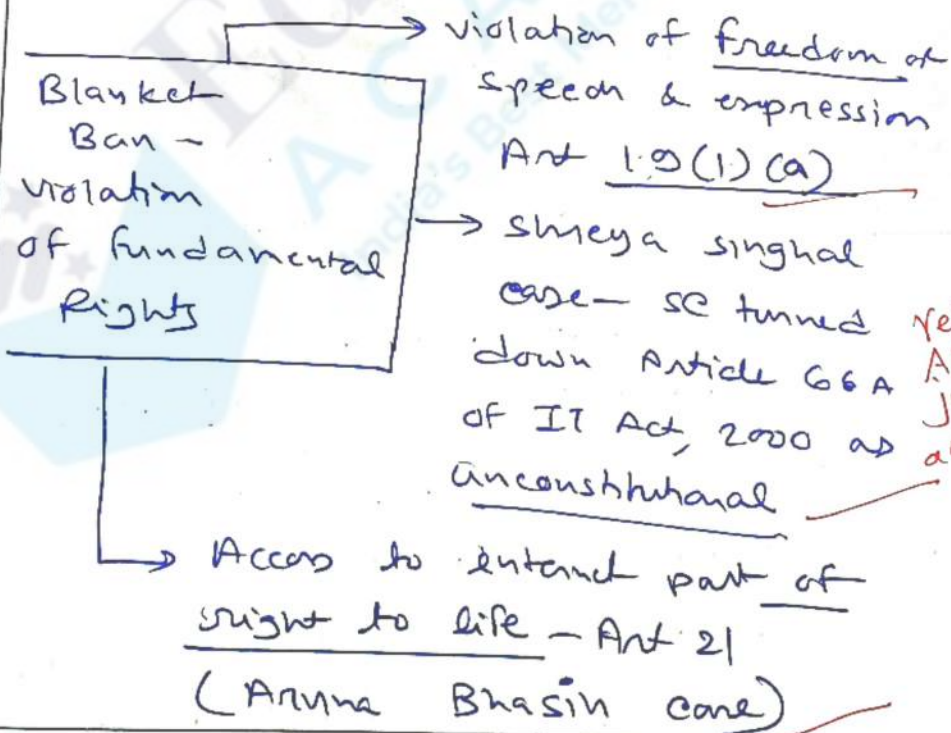 Blanket
Ban -
violation
of fundamental
Rights
→ violation of freedom of
speech & expression
Art 19(1)(a)
→ shreya singhal
case - SC turned
down Article 66A
of IT Act, 2000 as
unconstitutional
→ Access to internet part of
right to life - Art 21
(Bhasin case)
ACA
India's Best